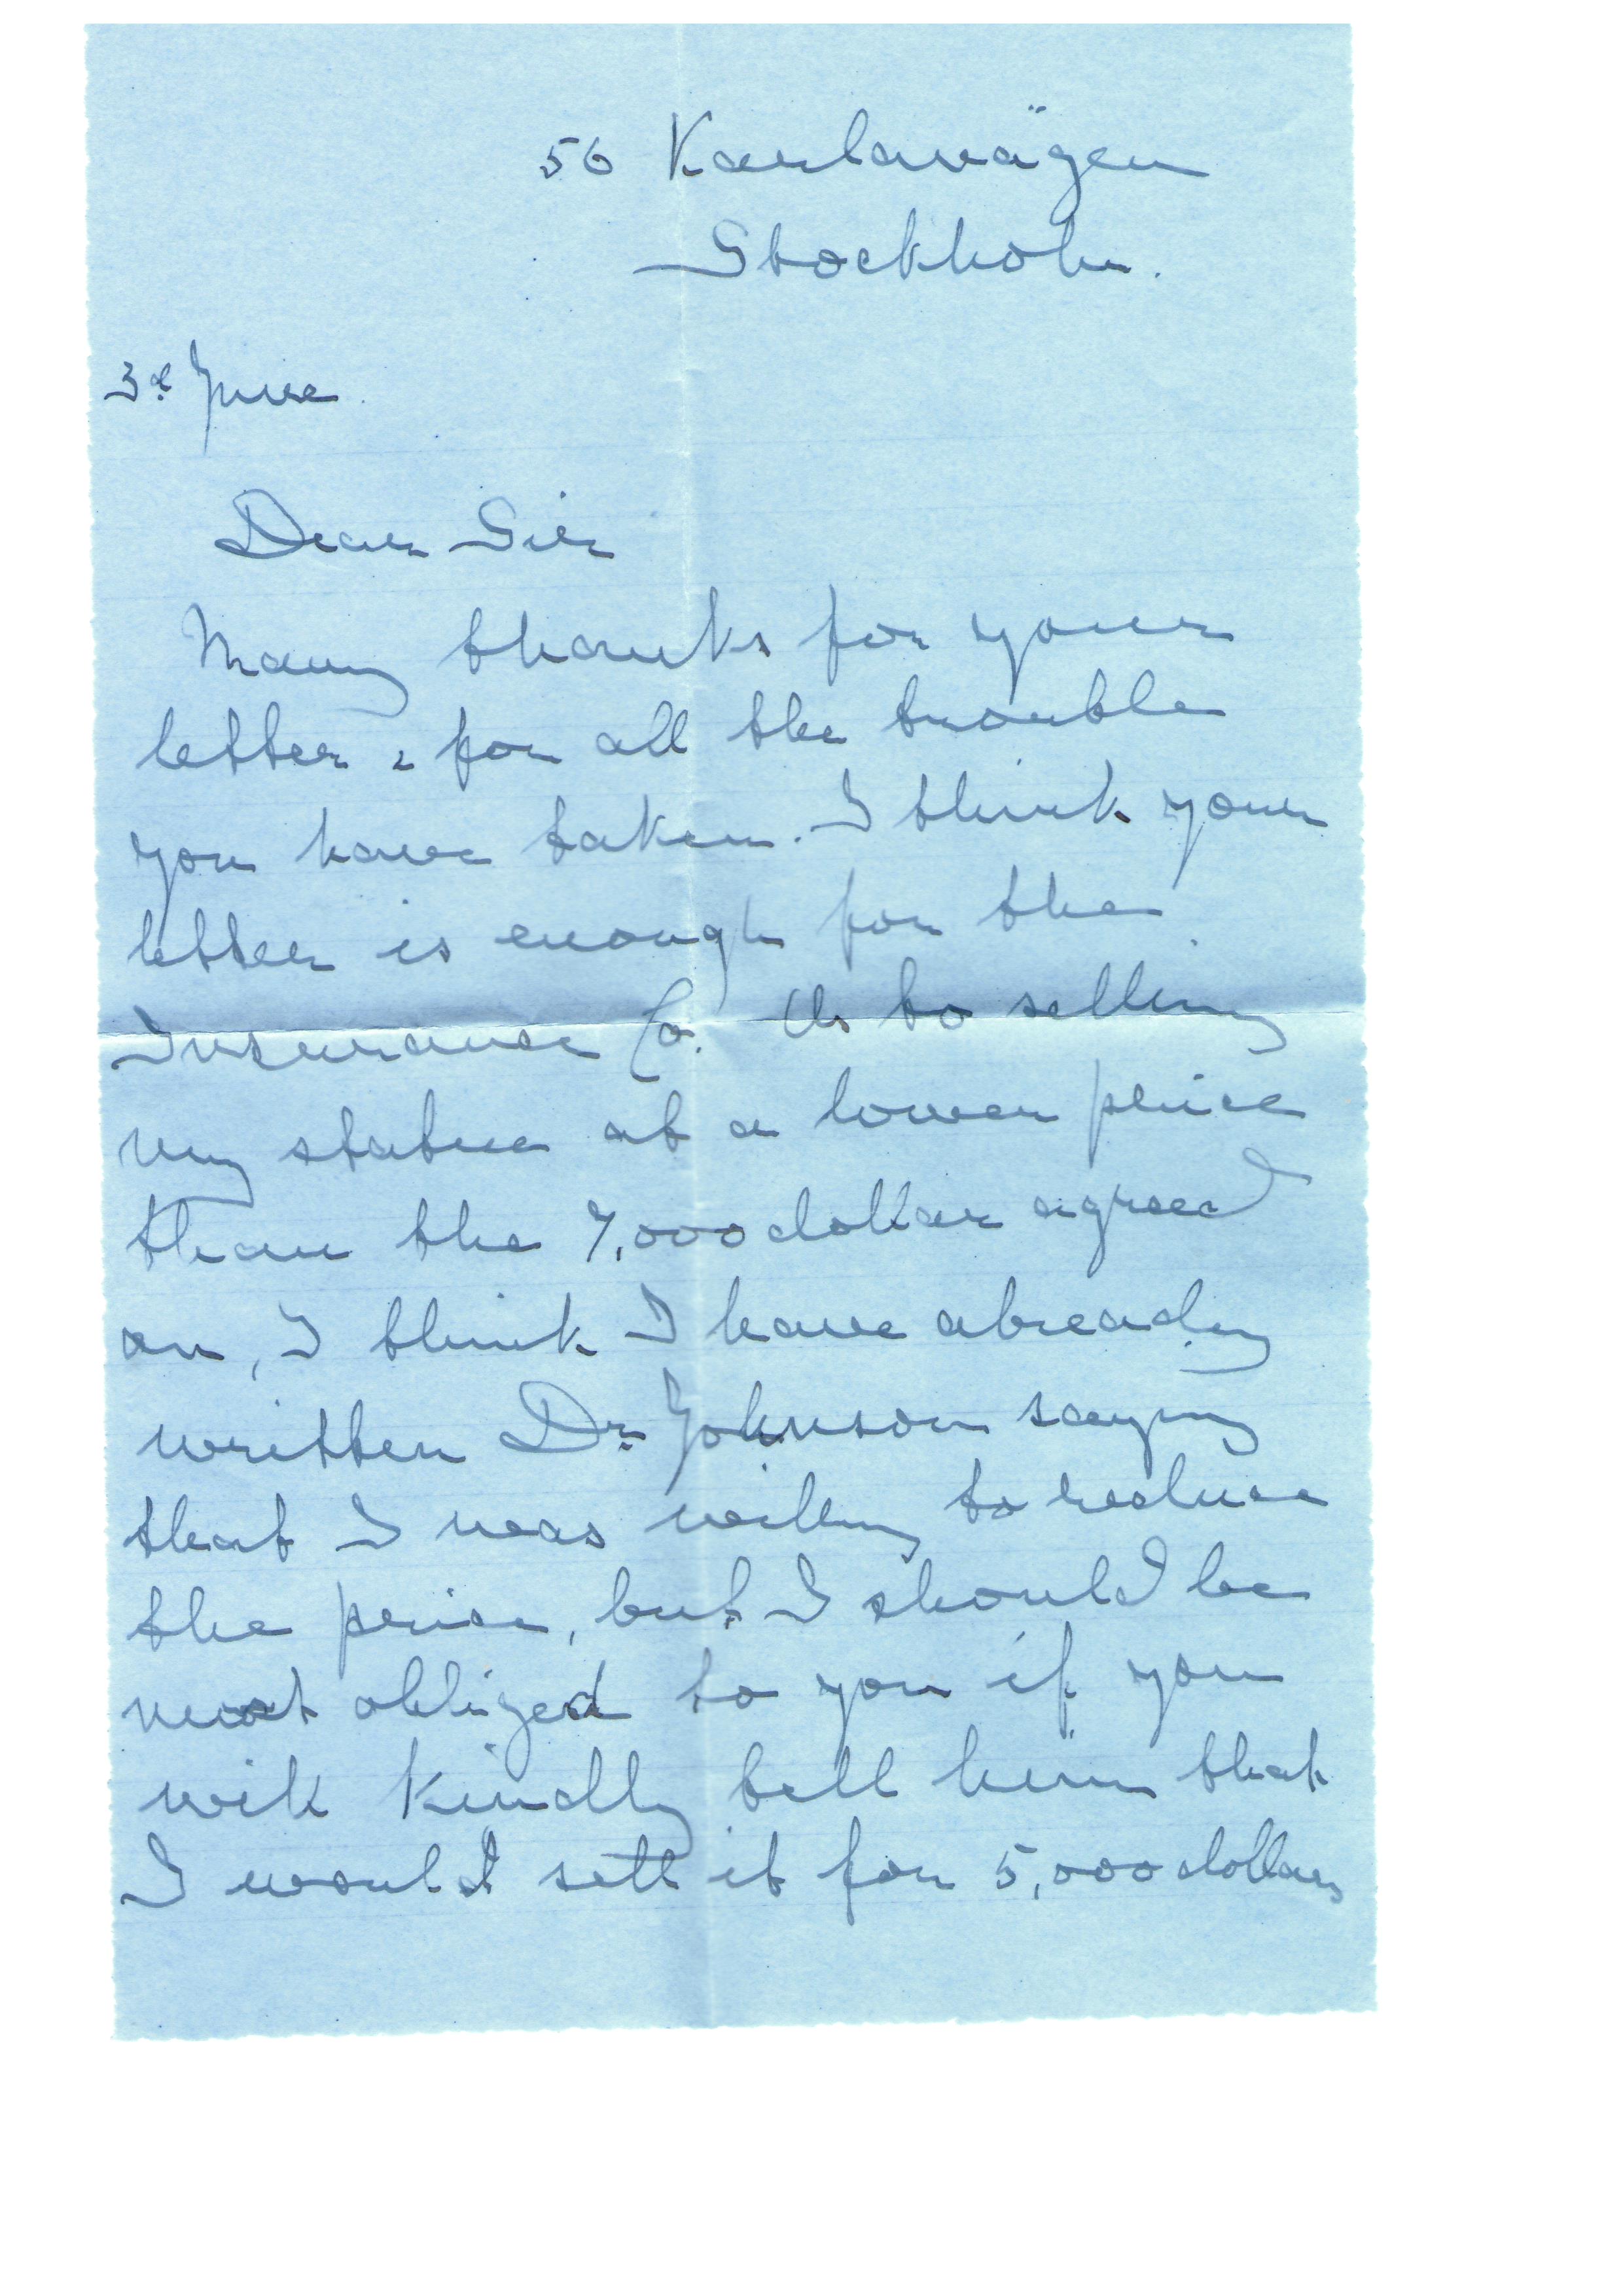 56 Karlavägen
Stockholm.
3d June
Dear Sir
Many thanks for your
letter & for all the trouble
you have taken. I think your
letter is enough for the
Insurance Co. As to selling
my statue at a lower price
than the 7,000 dollar agreed
on, I think I have already
written Dr. Johnson saying
that I was willing to reduce
the price, but I should be
most obliged to you if you
will kindly tell him that
I would sell it for 5,000 dollars